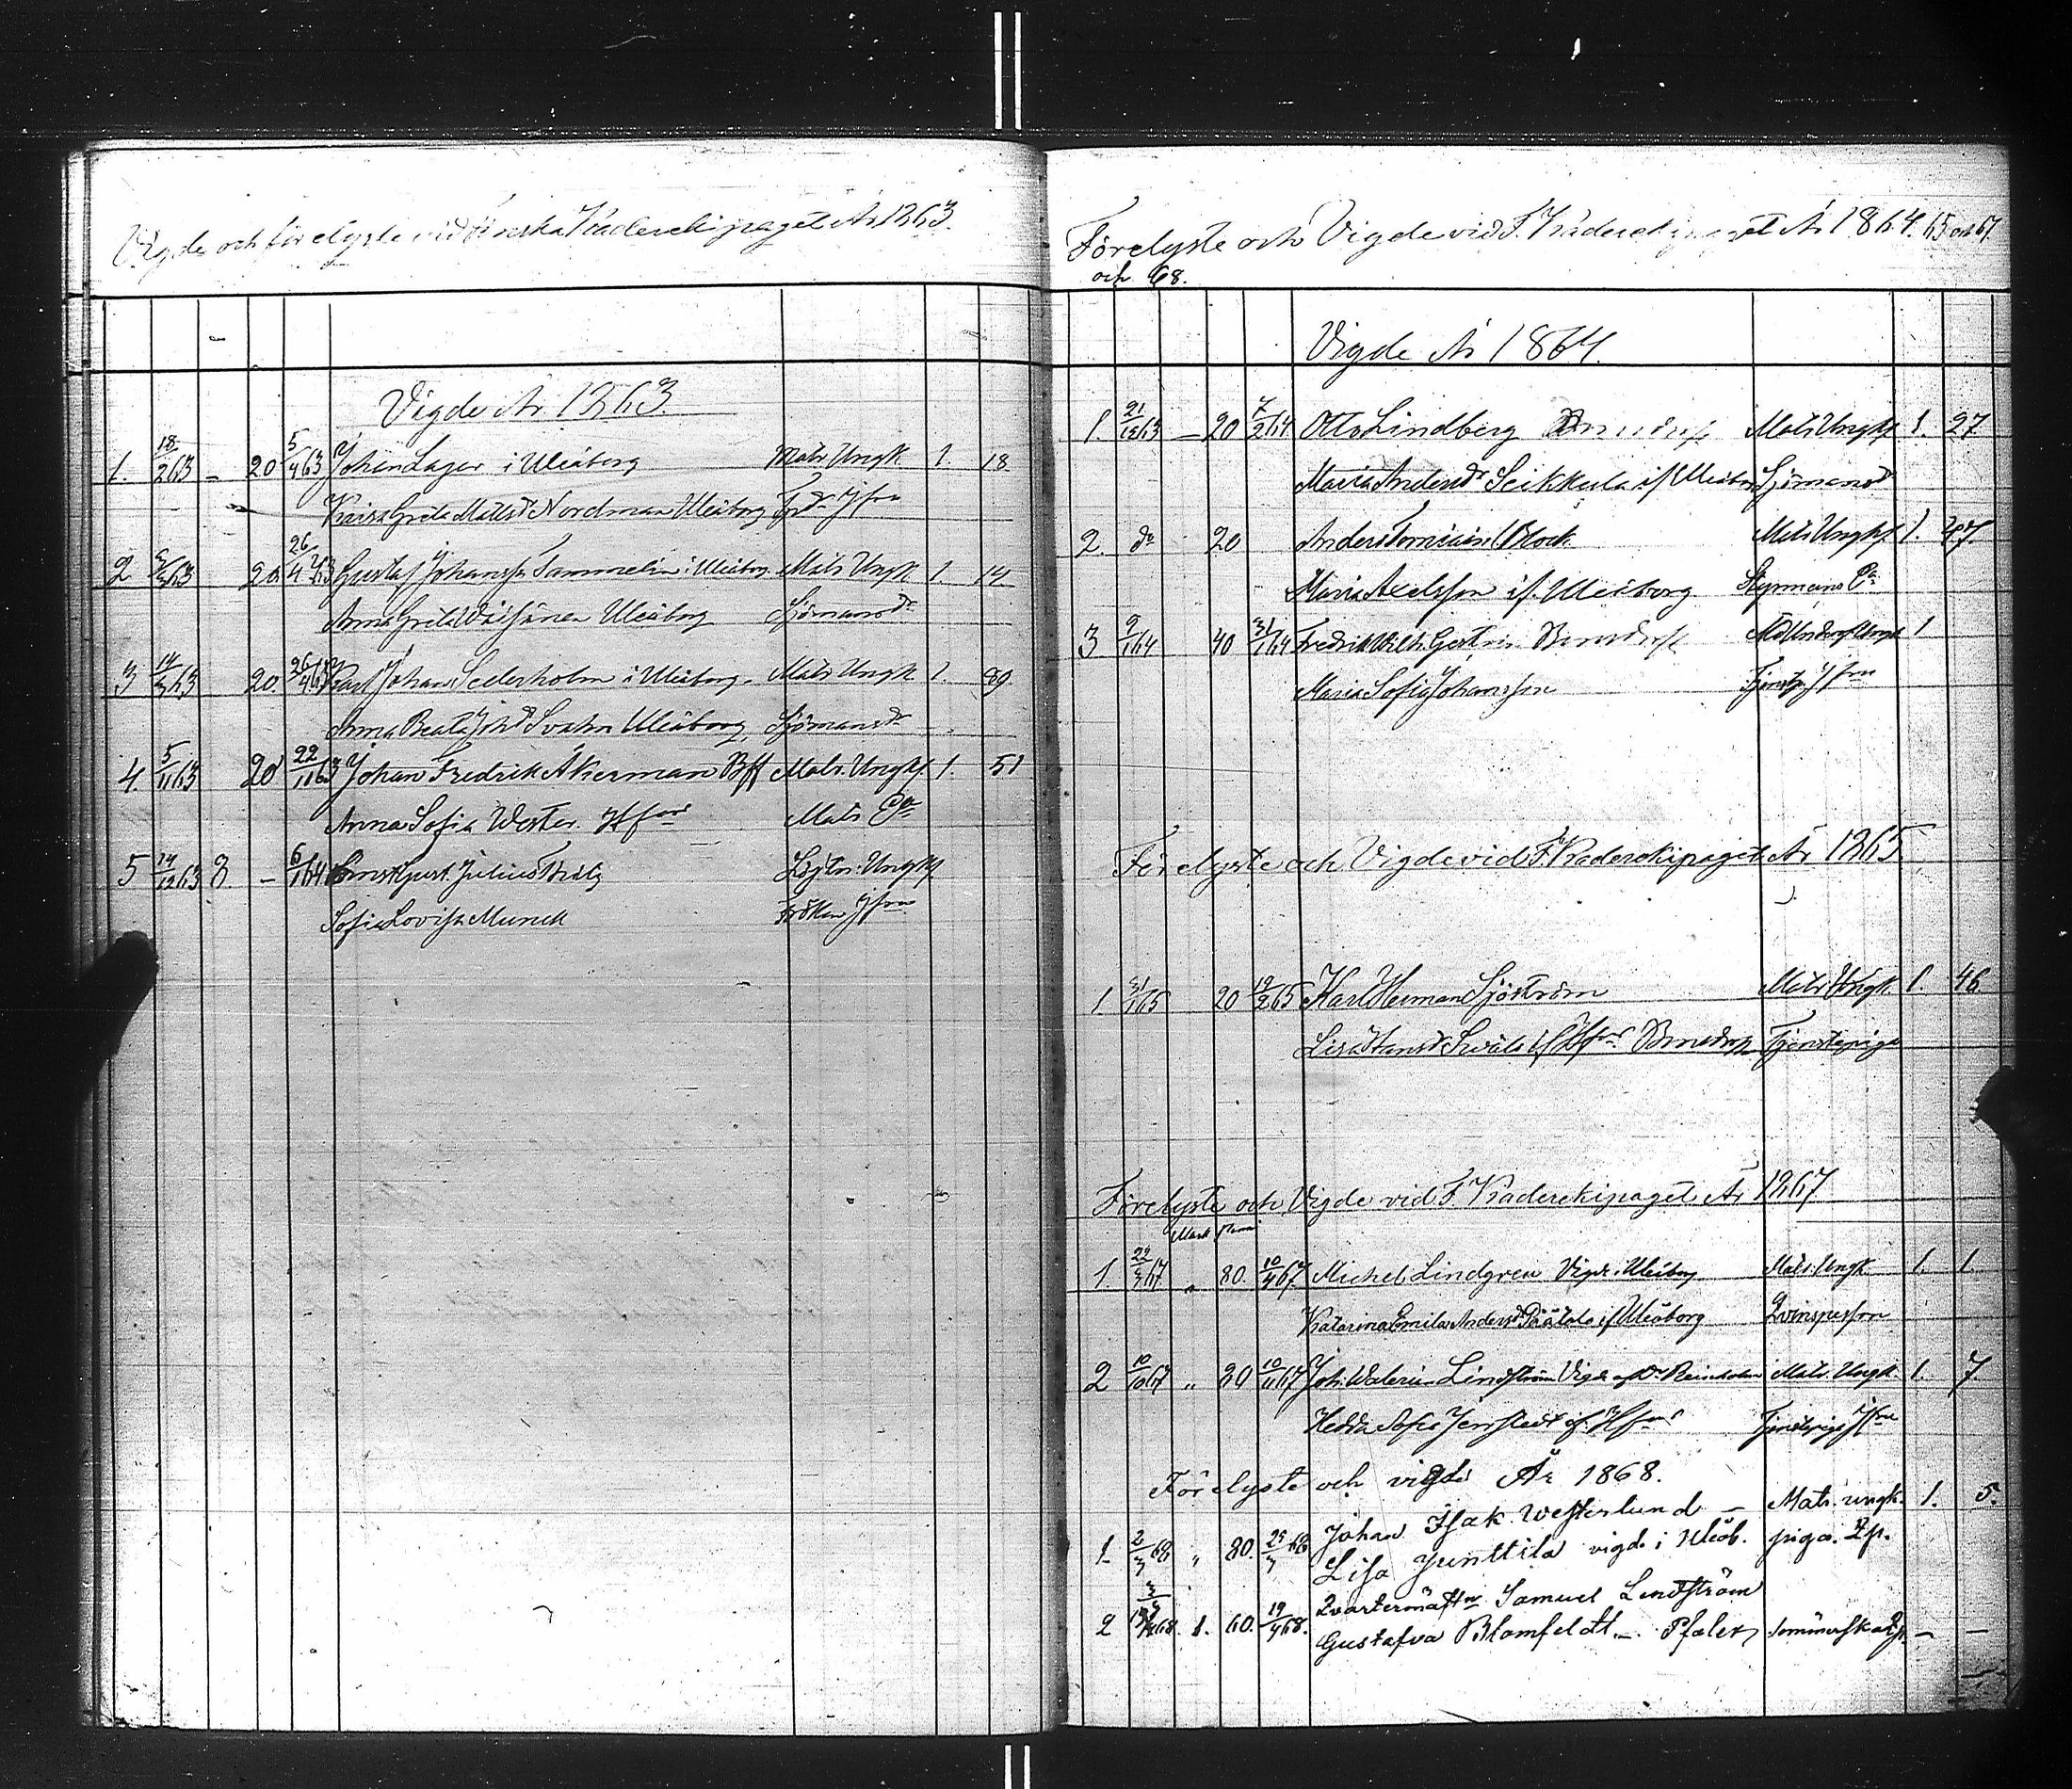 Vigde och förelyste vid Finska Kaderekipaget År 1863.
Vigde År 1863.
1. 18/2 63 – 20 5/4 63 Johan Lager i Uleåborg Matr. Ungk. 1. 18
Kaisa Greta Matsdr Nordman Uleåborg Jfru
2 63 20 26/4 63 Gustaf Johansson Tammelin i Uleåborg Matr. Ungk. 1. 14
Anna Greta Uleåborg Sjömansdr
3 14/3 63 20. 26/4 63 Karl Johan Sederholm i Uleåborg. Matr. Ungk. 1. 89
Anna Beata Johd Svahn Uleåborg, Sjömansdr
4. 5/11 63 20 22/11 63 Johan Fredrik Åkerman Matr. Ungk. 1. 51
Anna Sofia Wester. Hfors Matr. Ea
5 14/12 63 3. – 6/1 64 Julius Löjtn. Ungk.
Sofia Lovisa Munck Fröken Jfru
Förelyste och Vigde vid F. Kaderekipaget År 1864. 65 och 67.
och 68.
Vigde År 1864.
1. 21/12 63 – 20 7/2 64 Otto Lindberg Matr. Ungk. 1. 27
Maria Andersdr Seikkula if. Uleåborg Sjömansd
2 do 20 Anders Block. Matr. Ungk. 1. 47.
Maria Axelsson if. Uleåborg Styrmans Ea
3 9/1 64 40 31/1 64 Fredrik Wilh. 1
Maria Sofia Johansson Jfru
Förelyste och Vigde vid F. Kaderekipaget År 1865
1. 31/1 65 20 19/2 65 Karl Herman Sjöström Matr. Ungk. 1. 46.
Lisa Hansdr if Hfors Tjenstepiga
Förelyste och Vigde vid F. Kaderekipaget År 1867
Mark
1. 22/3 67 „ 80. 10/4 67 Michel Lindgren Vigde i Uleåborg Matr. Ungk. 1. 1.
Katarina Emilia Andersd Päätalo if Uleåborg Qvinsperson
2 10/10 67 „ 80 10/11 67 Joh. Lindström Vigde af Matr. Ungk. 1. 7.
Hedda Sofia Jernstedt if. Hfors Tjenstepiga Jfru
Förelyste och vigde År 1868.
Johan Isak Westerlund – Matr. ungk. 1. 5.
1. 2/3 68 „ 80. 25/3 68 Lisa Junttila vigde i Uleåb. piga. Qp.
Qvartermästn Samuel Lindström
2 68. 1. 60. 19/4 68. Gustafva Blomfeldt – Pfaler Sömmerska Qp. – –